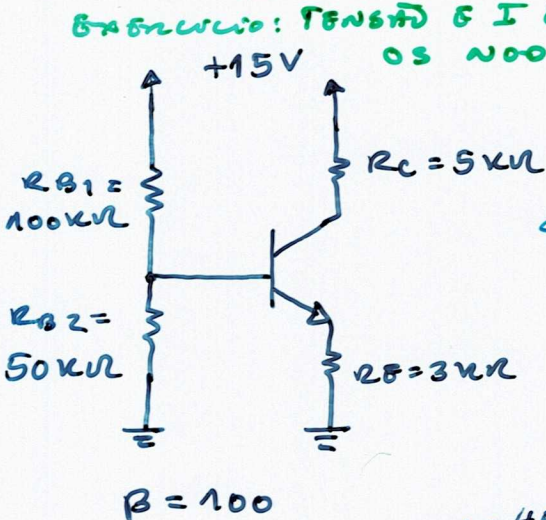 EXERCÍCIO: TENSÃO E I
OS NOO
+15V
RB1 =
100KΩ
RC = 5KΩ
RB2 =
50KΩ
RE = 3KΩ
β = 100